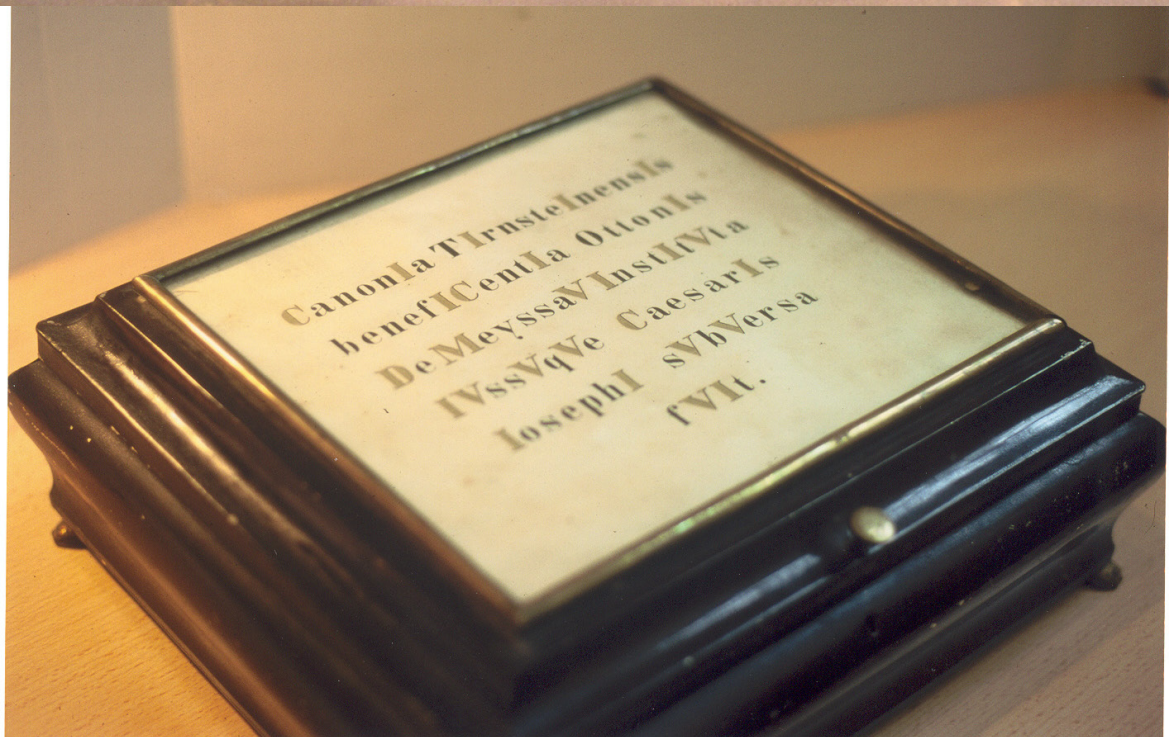 CanonIa TIrnsteInensIs
benefICentIa OttonIs
DeMeyssaV InstItVta
IVssVqVe CaesarIs
IosephI sVbVersa
fVIt.